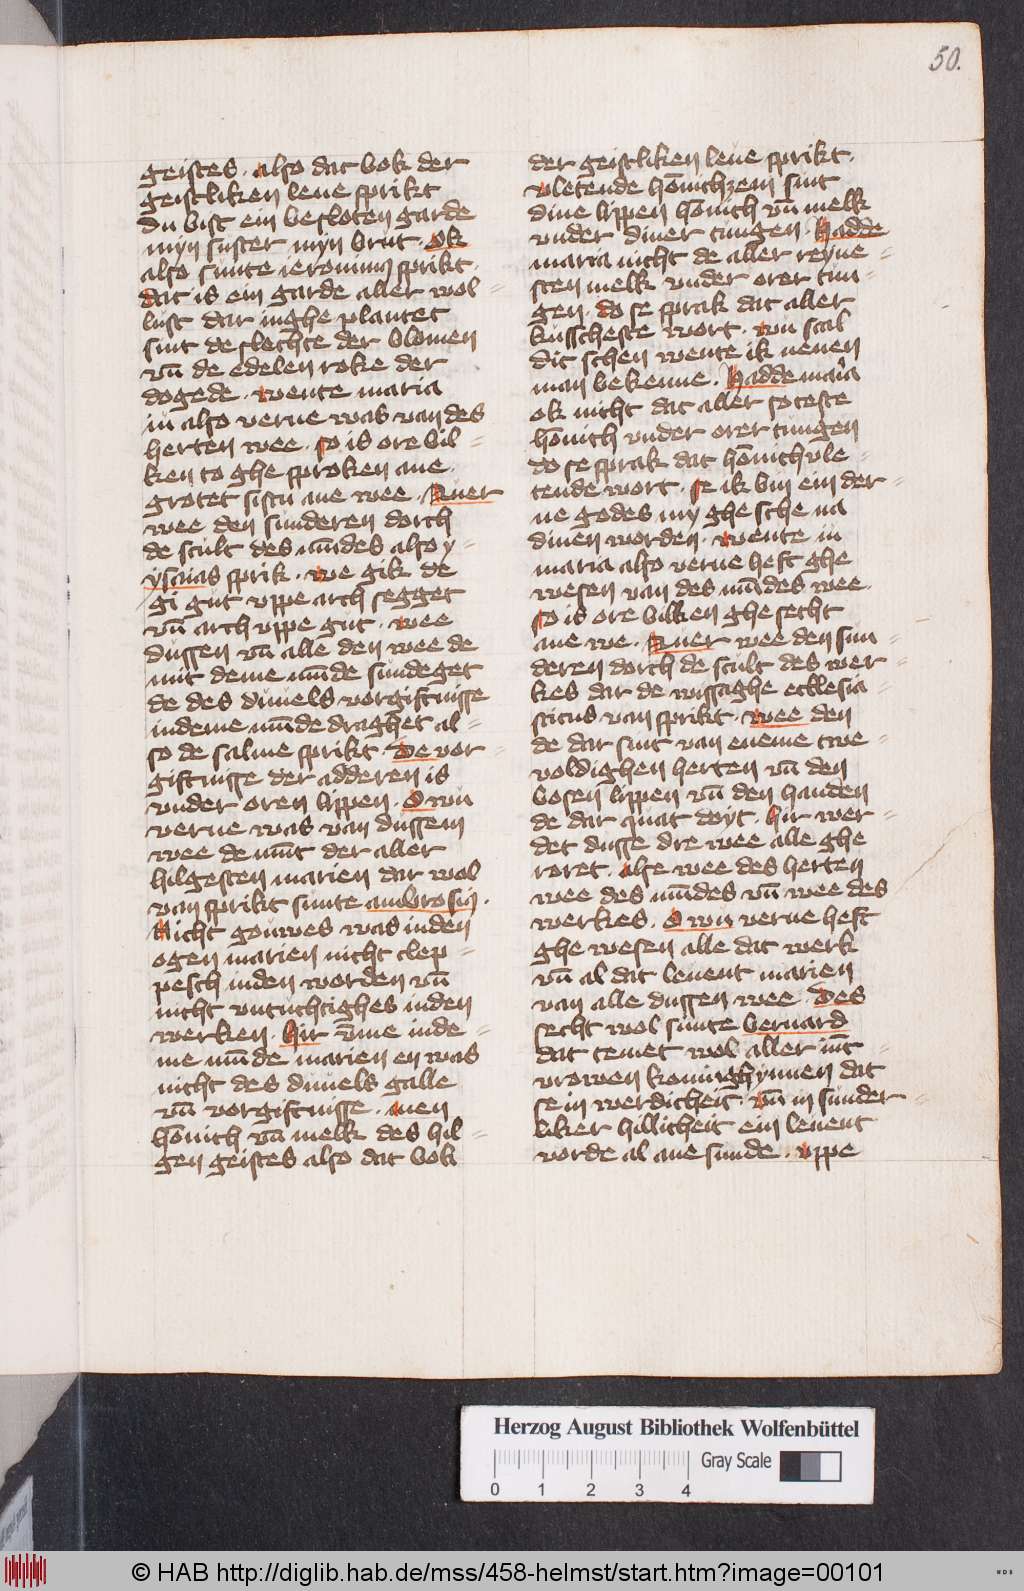 50.
geistes . also dat bok der
geistliken leue sprikt
du bist ein besloten garde
myn suster myn brut . Ok
also sunte ieronimus sprikt .
dat is ein garde aller wol=
lust dar inghe plantet
sint de slechte der blomen
vn̄ de edelen roke der
dogede . wente maria
in also verne was van des
herten wee . so is ore bil=
ken to ghe sproken aue .
grotet sistu aue wee . Auer
wee den sunderen dorch
de scult des mūdes also y=
ysaias sprik . we gik de
gi gut vppe arch segget
vn̄ arch vppe gut . wee
dussen vn̄ alle den wee de
mit deme mūde sundeget
de des duuels vorgiftnisse
indeme mūde draghet al=
so de salme sprikt . De vor=
giftnisse der adderen is
vnder oren lippen . O wu
verne was van dussem
wee de mūt der aller
hilgesten marien dar wol
van sprikt sunte ambrosius .
Nicht gouwes was inden
ogen marien nicht clep=
pesch inden worden vn̄
nicht vntuchtighes inden
werken . hir v̄me inde=
me mūde marien en was
nicht des duuels galle
vn̄ vorgiftnisse . men
hōnich vn̄ melk des hil=
gen geistes also dat bok
der geistliken leue sprikt .
vletende hōnichzem sint
dine lippen hōnich vn̄ melk
vnder diner tungen . Hadde
maria nicht de aller reyne=
sten melk vnder orer tun=
gen . do se sprak dat aller
kusscheste wort . wu scal
dit schen wente ik nenen
man bekenne . Hadde maria
ok nicht dat aller soteste
hōnich vnder orer tungen
do se sprak dat hōnichvle=
tende wort . se ik bin ein der=
ne godes my ghe sche na
dinen worden . wente in
maria also verne heft ghe
wesen van des mūdes wee .
so is ore billken ghe secht
aue we . Auer wee den sun=
deren dorch de scult des wer=
kes dar de wissaghe ecclesia=
sticus van sprikt . wee den
de dar sint van eneme twe=
voldighen herten vn̄ den
bosen lippen vn̄ den handen
de dar quat doyt . hir wer=
det dusse dre wee alle ghe
roret . alse wee des herten
wee des mūdes vn̄ wee des
werkes . O wu verne heft
ghe wesen alle dat werk
vn̄ al dat leuent marien
van alle dussen wee . Des
secht wol sunte bernard
dat temet wol aller mēt=
vrowen koninghynnen dat
se in werdicheit . vn̄ in sunder=
liker hillicheit ein leuent
vorde al ane sunde . vppe
Herzog August Bibliothek Wolfenbüttel
Gray Scale
0 1 2 3 4
© HAB http://diglib.hab.de/mss/458-helmst/start.htm?image=00101